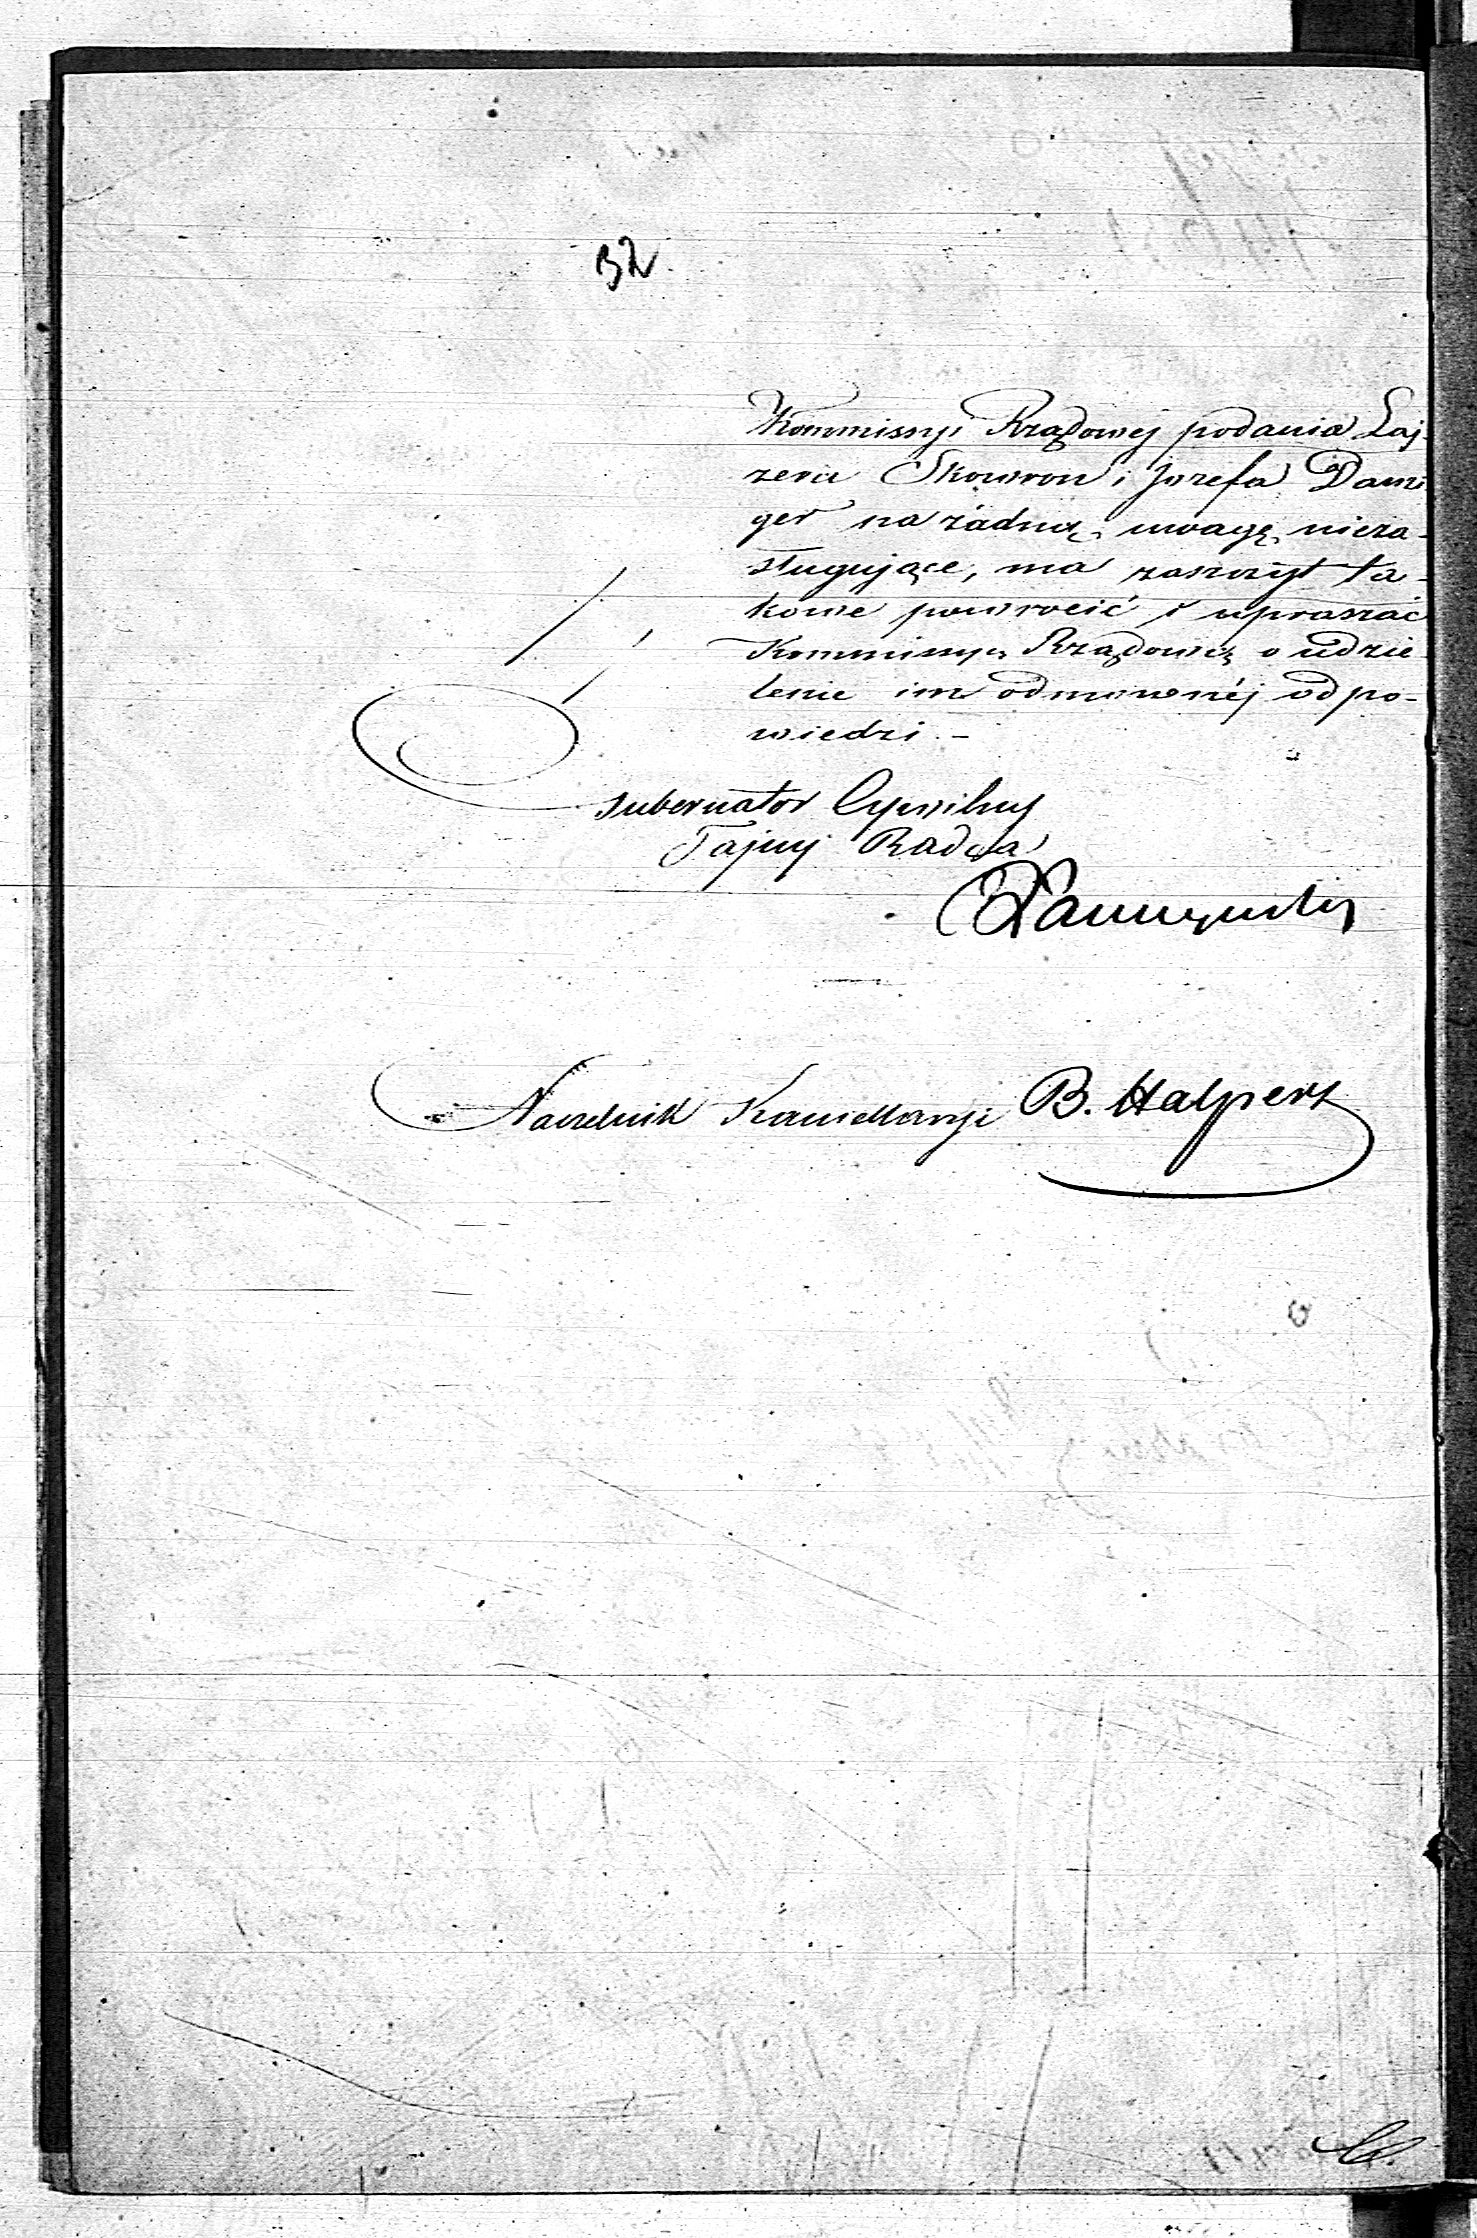 32.
Kommissyi Rządowej podania Laj-
zera Skowron i Jozefa Danzi
ger na żadną uwagę nieza-
sługujące, ma zaszczyt ta-
kowe powrócić i upraszać
Kommissyą Rządową o udzie-
lenie im odmownéj odpo-
wiedzi. -
Gubernator Cywilny
Tajny Radca
Naczelnik Kancellaryi B. Halpert